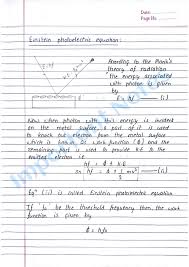 Date:
Page No.
Einstein photoelectric equation:
According to the Plank's
theory of radiation
the energy associated
with photon is given
by
E = hf — (i)
Now when photon with this energy is incident
on the metal surface, a part of it is used
to knock out electron from the metal surface
which is known as work function (ϕ) and the
remaining part is used to provide K.E to the
emitted electron i.e
hf = ϕ + K.E
or, hf = ϕ + 1/2 mv² — (ii)
Eqⁿ (ii) is called Einstein photoelectric equation
If f₀ be the threshold frequency then, the work
function is given by
ϕ = hf₀